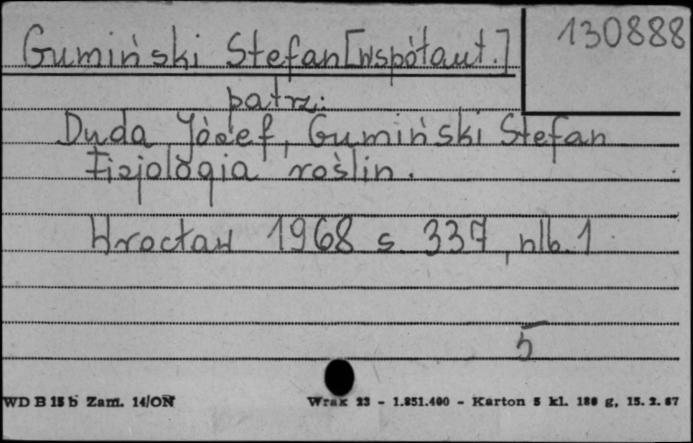 130888
Gumiński Stefan [współaut.]
patrz:
Duda Józef, Gumiński Stefan
Fizjologia roślin.
Wrocław 1968 s. 337, nlb. 1
5
WD B 15 b Zam. 14/ON Wrak 23 - 1.851.400 - Karton 5 kl. 180 g, 15. 2. 67